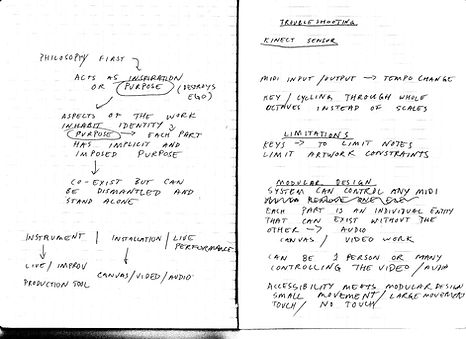 PHILOSOPHY FIRST
ACTS AS INSPIRATION
OR PURPOSE (DESTROYS
EGO)
ASPECTS OF THE WORK
INHABIT IDENTITY
PURPOSE → EACH PART
HAS IMPLICIT AND
IMPOSED PURPOSE
CO-EXIST BUT CAN
BE DISMANTLED AND
STAND ALONE
INSTRUMENT / INSTALLATION / LIVE
PERFORMANCE
LIVE / IMPROV
PRODUCTION TOOL
CANVAS/VIDEO/AUDIO
TROUBLESHOOTING
KINECT SENSOR
MIDI INPUT/OUTPUT → TEMPO CHANGE
KEY / CYCLING THROUGH WHOLE
OCTAVES INSTEAD OF SCALES
LIMITATIONS
KEYS → TO LIMIT NOTES
LIMIT ARTWORK CONSTRAINTS
MODULAR DESIGN
SYSTEM CAN CONTROL ANY MIDI
EACH PART IS AN INDIVIDUAL ENTITY
THAT CAN EXIST WITHOUT THE
OTHER → AUDIO
CANVAS / VIDEO WORK
CAN BE 1 PERSON OR MANY
CONTROLLING THE VIDEO / AUDIO
ACCESSIBILITY MEETS MODULAR DESIGN
SMALL MOVEMENT / LARGE MOVEMENT
TOUCH / NO TOUCH